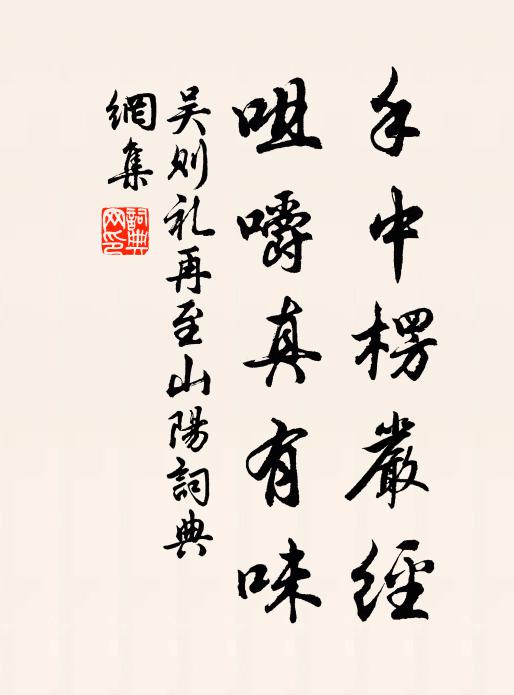 手中楞嚴經
咀嚼真有味
吴则礼再至山陽詞典
網集
詞典網印